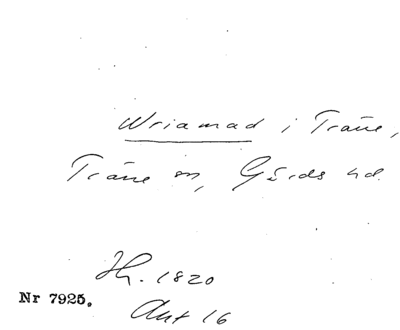 Wriamad i Träne,
Träne sn, Gärds hd.
Jh. 1820
Nr 7925.
Akt 16